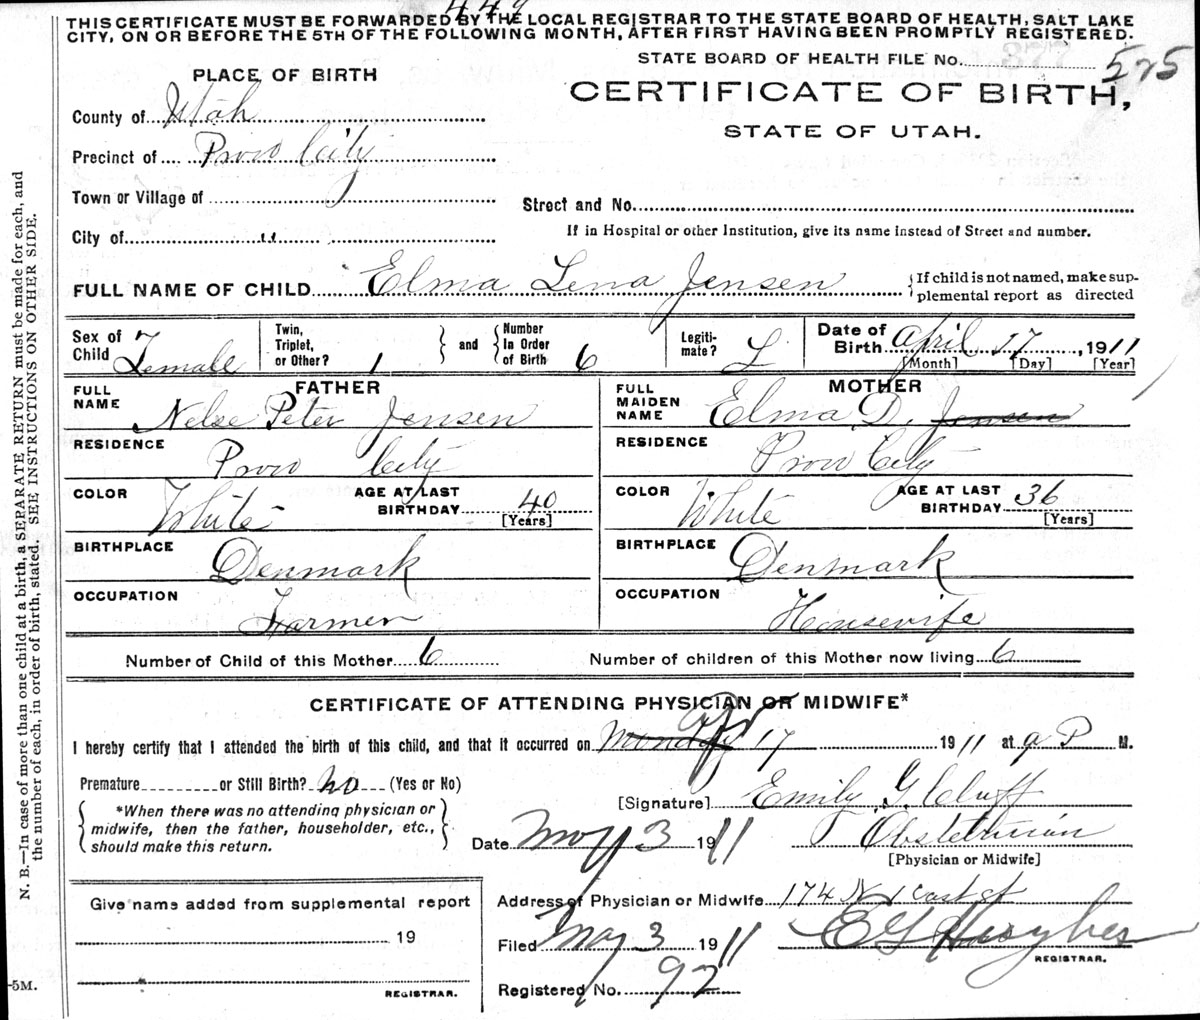 449
THIS CERTIFICATE MUST BE FORWARDED BY THE LOCAL REGISTRAR TO THE STATE BOARD OF HEALTH, SALT LAKE
CITY, ON OR BEFORE THE 5TH OF THE FOLLOWING MONTH, AFTER FIRST HAVING BEEN PROMPTLY REGISTERED.
STATE BOARD OF HEALTH FILE No. 525
PLACE OF BIRTH
CERTIFICATE OF BIRTH,
STATE OF UTAH.
County of Utah
Precinct of Provo City
Town or Village of
Street and No.
City of "
If in Hospital or other Institution, give its name instead of Street and number.
FULL NAME OF CHILD Elma Lena Jensen
If child is not named, make sup-
plemental report as directed
Sex of Child Female
Twin, Triplet, or Other? 1
and
Number In Order of Birth 6
Legiti-mate? L
Date of Birth April 17, 1911
[Month] [Day] [Year]
FATHER
FULL NAME Nelse Peter Jensen
RESIDENCE Provo City
COLOR White
AGE AT LAST BIRTHDAY 40
[Years]
BIRTHPLACE Denmark
OCCUPATION Farmer
MOTHER
FULL MAIDEN NAME Elma D. Jensen
RESIDENCE Provo City
COLOR White
AGE AT LAST BIRTHDAY 36
[Years]
BIRTHPLACE Denmark
OCCUPATION Housewife
Number of Child of this Mother 6
Number of children of this Mother now living 6
CERTIFICATE OF ATTENDING PHYSICIAN OR MIDWIFE*
I hereby certify that I attended the birth of this child, and that it occurred on Monday Apr 17 1911 at 9 P M.
Premature or Still Birth? no (Yes or No)
*When there was no attending physician or
midwife, then the father, householder, etc.,
should make this return.
[Signature] Emily G. Cluff
Date May 3 1911 Obstetrician
[Physician or Midwife]
Give name added from supplemental report
19
REGISTRAR.
Address of Physician or Midwife 174 N 1 east st
Filed May 3 1911 E G Hughes
REGISTRAR.
Registered No. 92
N. B.—In case of more than one child at a birth, a SEPARATE RETURN must be made for each, and
the number of each, in order of birth, stated. SEE INSTRUCTIONS ON OTHER SIDE.
-5M.